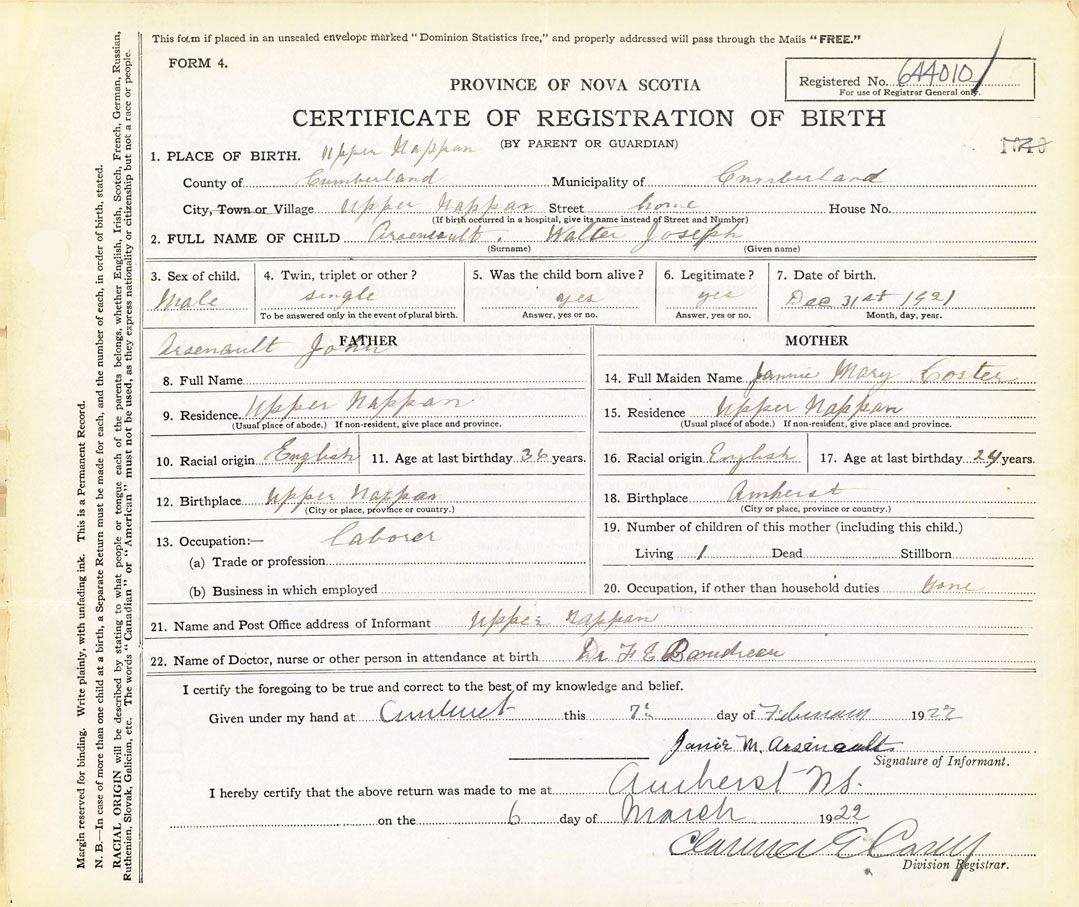 This form if placed in an unsealed envelope marked "Dominion Statistics free," and properly addressed will pass through the Mails "FREE."
FORM 4.
Registered No. 644010
For use of Registrar General only.
PROVINCE OF NOVA SCOTIA
CERTIFICATE OF REGISTRATION OF BIRTH
(BY PARENT OR GUARDIAN)
1. PLACE OF BIRTH. Upper Nappan
County of Cumberland Municipality of Cumberland
City, Town or Village Upper Nappan Street home House No.
(If birth occurred in a hospital, give its name instead of Street and Number)
2. FULL NAME OF CHILD Arseneault. Walter Joseph
(Surname) (Given name)
3. Sex of child. 4. Twin, triplet or other? 5. Was the child born alive? 6. Legitimate? 7. Date of birth.
Male single yes yes Dec 31st 1921
To be answered only in the event of plural birth. Answer, yes or no. Answer, yes or no. Month, day, year.
FATHER
Arsenault John
8. Full Name
9. Residence. Upper Nappan
(Usual place of abode.) If non-resident, give place and province.
10. Racial origin English 11. Age at last birthday 36 years.
12. Birthplace Upper Nappan
(City or place, province or country.)
13. Occupation:— Laborer
(a) Trade or profession
(b) Business in which employed
MOTHER
14. Full Maiden Name Jannie Mary Coster
15. Residence Upper Nappan
(Usual place of abode.) If non-resident, give place and province.
16. Racial origin English 17. Age at last birthday 24 years.
18. Birthplace Amherst
(City or place, province or country.)
19. Number of children of this mother (including this child.)
Living 1 Dead Stillborn
20. Occupation, if other than household duties None
21. Name and Post Office address of Informant Upper Nappan
22. Name of Doctor, nurse or other person in attendance at birth Dr F E Boudreau
I certify the foregoing to be true and correct to the best of my knowledge and belief.
Given under my hand at Amherst this 7th day of February 1922
Janie M. Arseneault
Signature of Informant.
I hereby certify that the above return was made to me at Amherst NS.
on the 6 day of March 1922
Clarence E Casey
Division Registrar.
Margin reserved for binding. Write plainly, with unfading ink. This is a Permanent Record.
N. B.—In case of more than one child at a birth, a Separate Return must be made for each, and the number of each, in order of birth, stated.
RACIAL ORIGIN will be described by stating to what people or tongue each of the parents belongs, whether English, Irish, Scotch, French, German, Russian,
Ruthenian, Slovak, Galician, etc. The words "Canadian" or "American" must not be used, as they express nationality or citizenship but not a race or people.